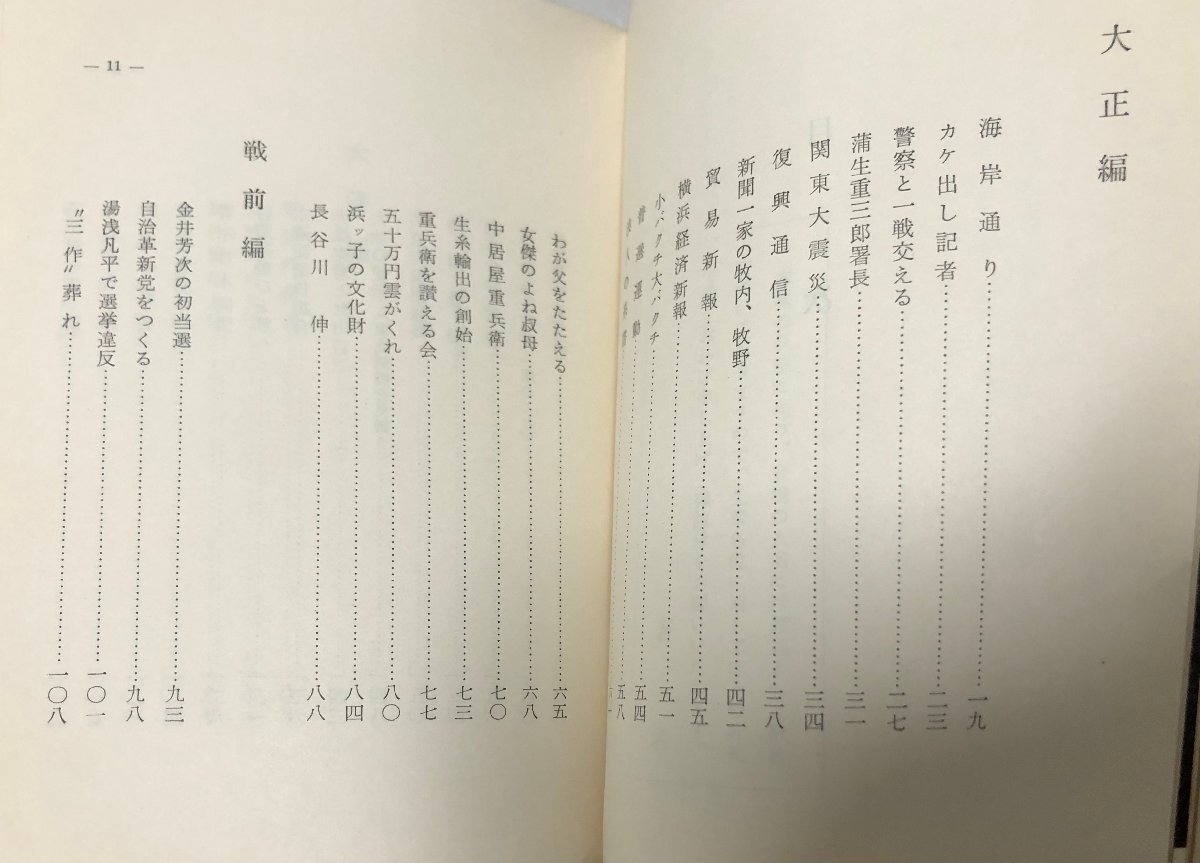 大正編
海岸通り……一九
カケ出し記者……二三
警察と一戦交える……二七
蒲生重三郎署長……三一
関東大震災……三四
復興通信……三八
新聞一家の牧内、牧野……四二
貿易新報……四五
横浜経済新報……五一
小バクチ大バクチ……五四
運動……五八
— 11 —
わが父をたたえる……六五
女傑のよね叔母……六八
中居屋重兵衛……七〇
生糸輸出の創始……七三
重兵衛を讃える会……七七
五十万円雲がくれ……八〇
浜ッ子の文化財……八四
長谷川伸……八八
戦前編
金井芳次の初当選……九三
自治革新党をつくる……九八
湯浅凡平で選挙違反……一〇一
〝三作〟葬れ……一〇八